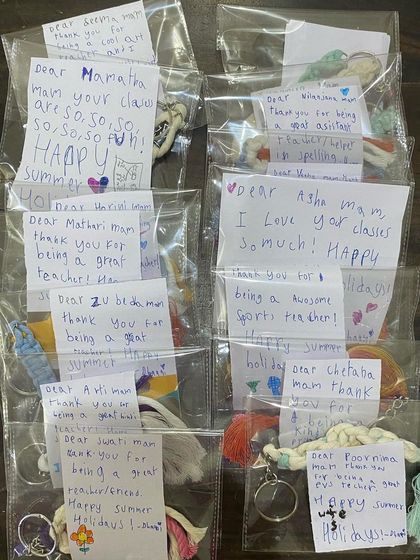 Dear Seema mam
thank you for
being a cool art
teacher and I
Dear Mamatha
mam your classes
are so, so, so,
so, so, so, so fun!
HAPPY
summer
Dear Harini mam
Dear Mathari mam
thank you for
being a great
teacher!
Dear Zubeda mam
thank you for
being a great
teacher! Happy
summer
Dear Arti mam
thank you for
being a great
teacher!
Dear Swati mam
thank you for
being a great
teacher/friend.
Happy summer
Holidays!
Dear Nilanjana mam
thank you for being
a great asistant
teacher/helper
in spelling
Dear
Dear Asha mam,
I Love your classes
so much! HAPPY
holidays!
thank you for
being a Awosome
Sports teacher!
Happy summer
holidays
Dear Chetana
mam thank
you for
being a
kind
Dear Poornima
mam thank you
for being a great
evs teacher.
Happy summer
Holidays!